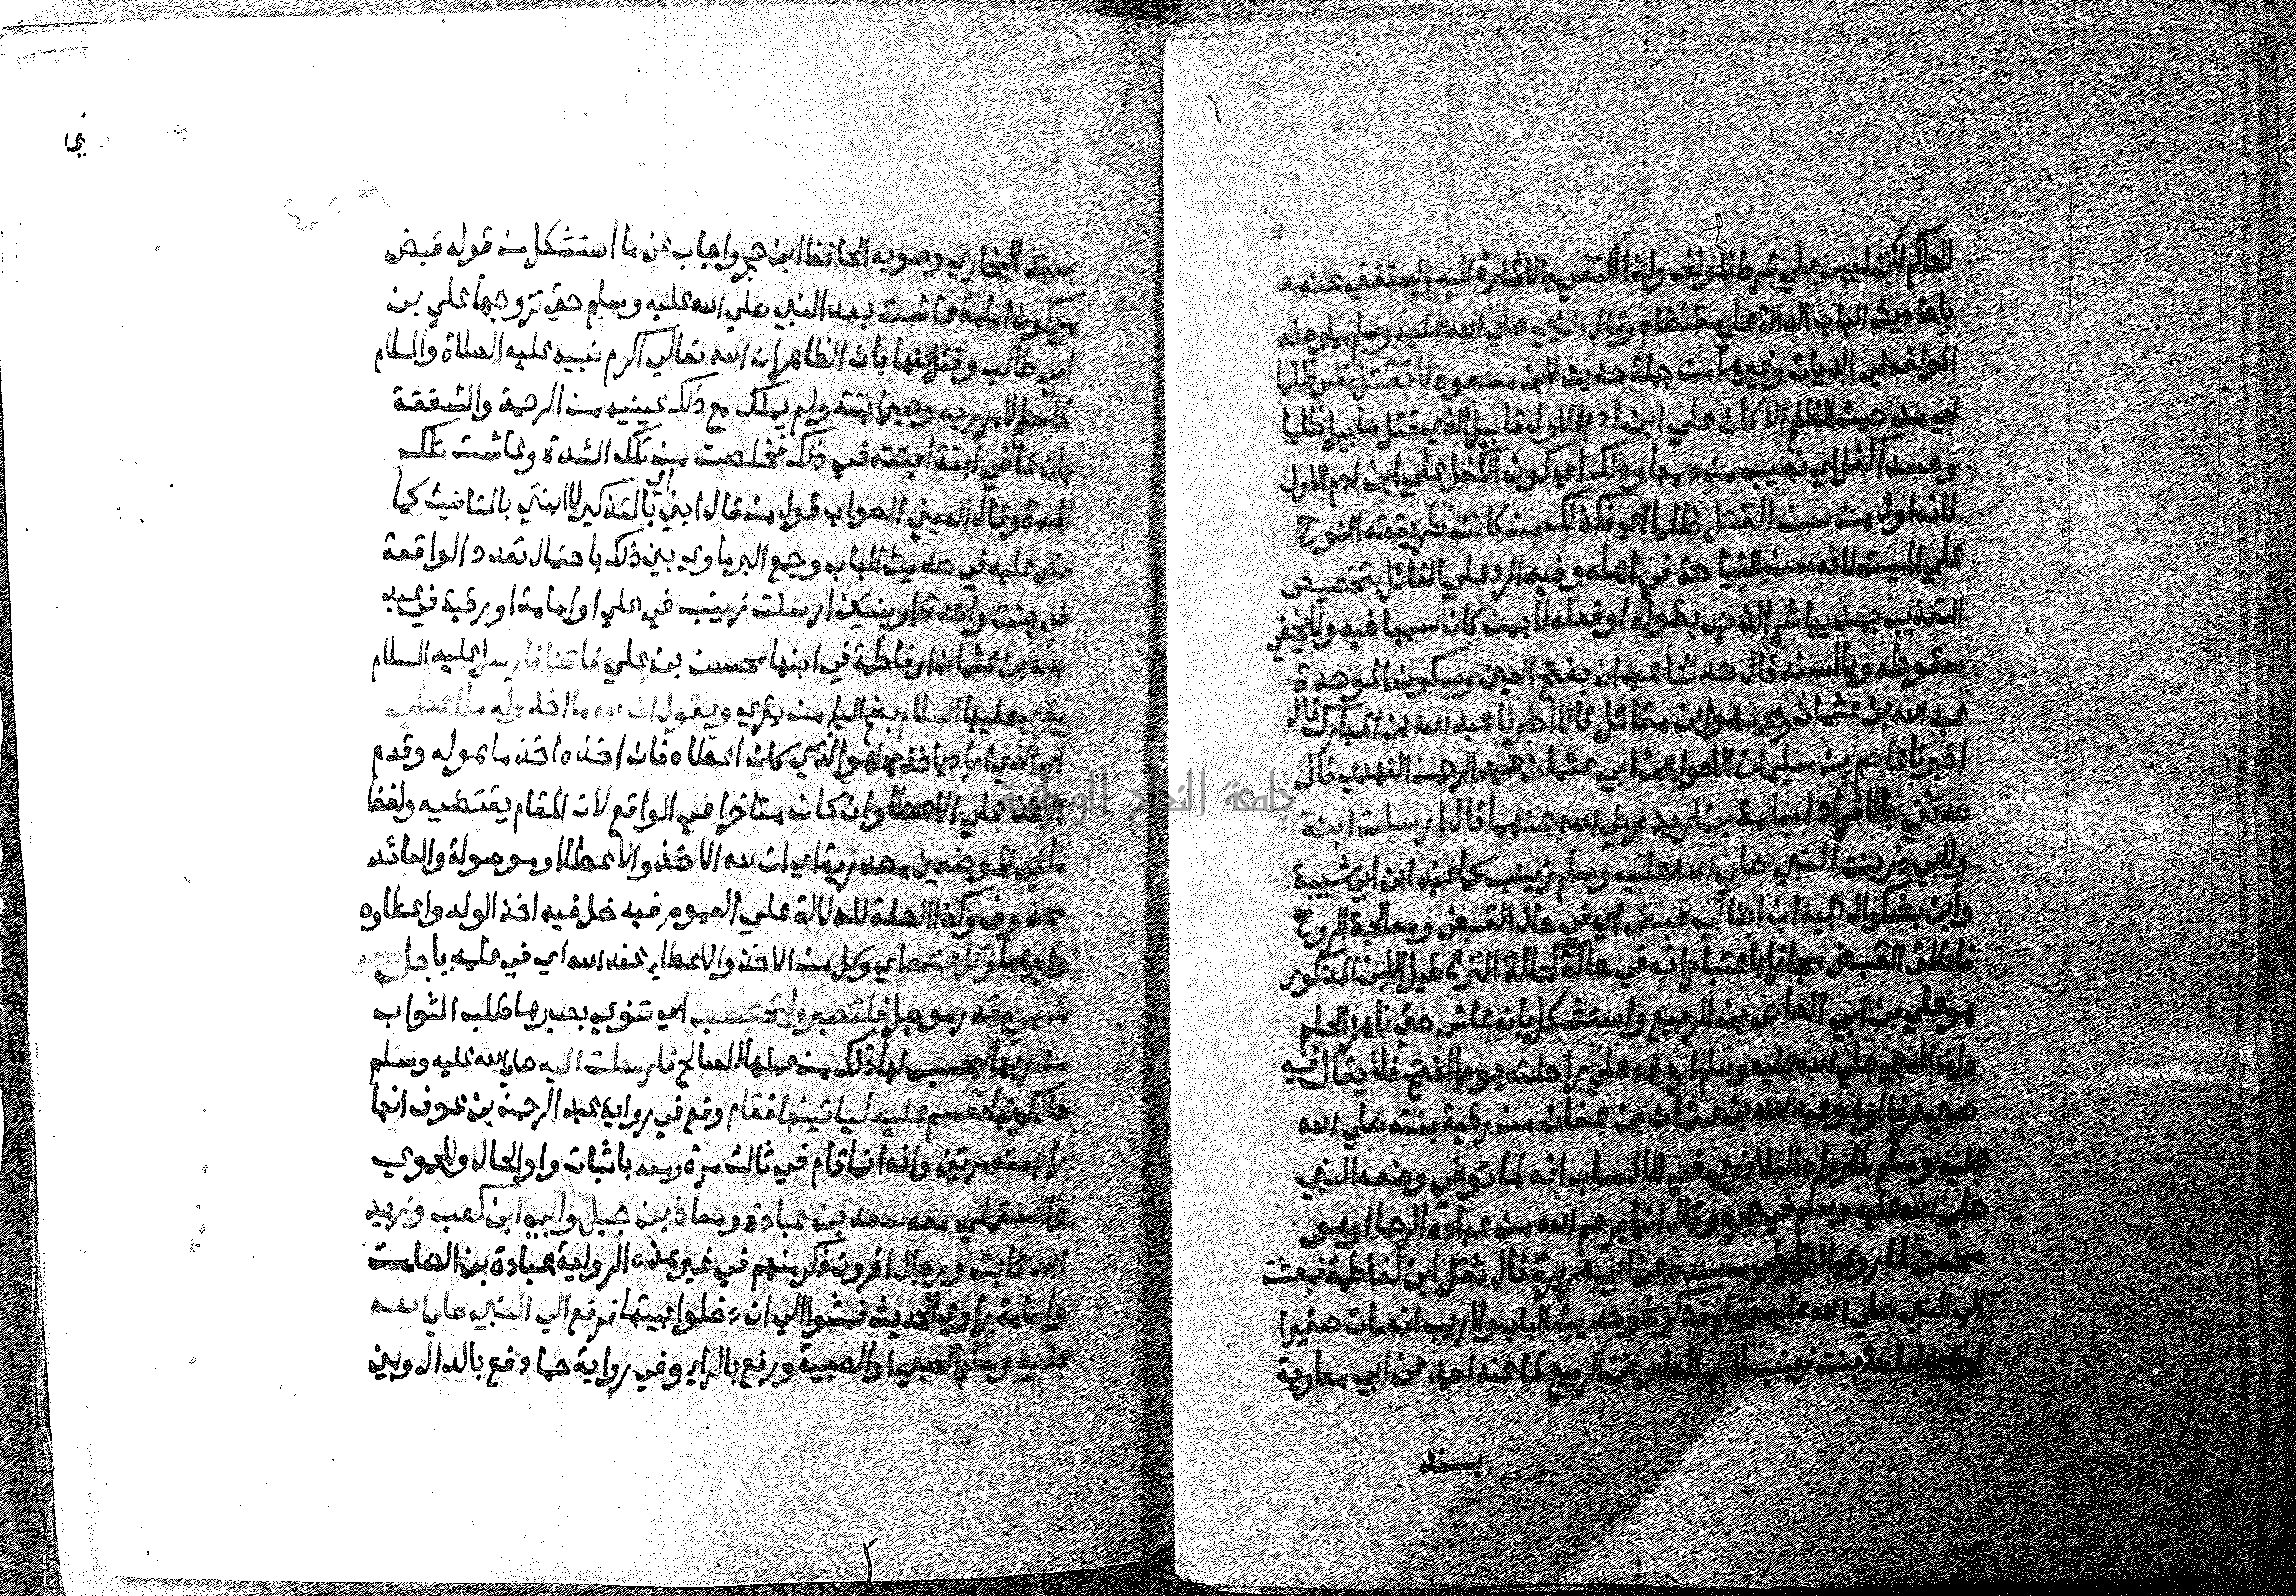 الحاكم لكن ليس علي شرط المولف ولذا اكتفي بالاشارة اليه واستغني عنه
باحاديث الباب الدالة علي مقتضاه وقال النبي صلي الله عليه وسلم مما وصله
المولف في الديات وغيرها من جملة حديث لابن مسعود لا تقتل نفس ظلما
اي من حيث الظلم الا كان علي ابن ادم الاول قابيل الذي قتل هابيل ظلما
وحسدا كفل اي نصيب من دمها وذلك اي كون الكفل علي ابن ادم الاول
لانه اول من سن القتل ظلما اي فكذلك من كانت طريقته النوح
علي الميت لانه سن النياحة في اهله وفيه الرد علي القائل بتخصيص
التعذيب بمن يباشر الذنب بقوله او فعله لا بمن كان سببا فيه ولا يخفي
سقوطه وبالسند قال حدثنا عبدان بفتح العين وسكون الموحدة
عبد الله بن عثمان ومحمد هو ابن مقاتل قالا اخبرنا عبد الله بن المبارك قال
اخبرنا عاصم بن سليمان الاحول عن ابي عثمان عبد الرحمن النهدي قال
حدثني بالافراد اسامة بن زيد رضي الله عنهما قال ارسلت ابنة
ولابي ذر بنت النبي صلي الله عليه وسلم زينب كما عند ابن ابي شيبة
وابن بشكوال اليه ان ابنا لي قبض اي في حال القبض ومعالجة الروح
فاطلق القبض مجازا باعتبار انه في حالة كحالة النزع قيل الابن المذكور
هو علي بن ابي العاص بن الربيع واستشكل بانه عاش حتي ناهز الحلم
وان النبي صلي الله عليه وسلم اردفه علي راحلته يوم الفتح فلا يقال فيه
صبي عرفا او هو عبد الله بن عثمان بن عفان من رقية بنته صلي الله
عليه وسلم لما رواه البلاذري في الانساب انه لما توفي وضعه النبي
صلي الله عليه وسلم في حجره وقال انما يرحم الله من عباده الرحما او هو
محسن لما روي البزار في مسنده عن ابي هريرة قال ثقل ابن لفاطمة فبعثت
الي النبي صلي الله عليه وسلم فذكر نحو حديث الباب ولا ريب انه مات صغيرا
او هي امامة بنت زينب لابي العاص بن الربيع لما عند احمد عن ابي معاوية
بسند
بسند البخاري وصوبه الحافظ ابن حجر واجاب عن ما استشكل من قوله قبض
مع كون امامة عاشت بعد النبي صلي الله عليه وسلم حتي تزوجها علي بن
ابي طالب وقتل عنها بان الظاهر ان الله تعالي اكرم نبيه عليه الصلاة والسلام
لما سلم لامر ربه وصبر ابنته ولم يملك مع ذلك عينيه من الرحمة والشفقة
بان عافي ابنة ابنته في ذلك فخلصت من تلك الشدة وعاشت تلك
المدة وقال العيني الصواب قول من قال ابني اي بالتذكير لا ابنتي بالتانيث كما
نص عليه في حديث الباب وجمع البرماوي بين ذلك باحتمال تعدد الواقعة
في بنت واحدة او بنتين ارسلت زينب في علي او امامة او رقية في عبد
الله بن عثمان او فاطمة في ابنها محسن بن علي فاتنا فارسل عليه السلام
يقري عليها السلام بضم الياء من يقري ويقول ان لله ما اخذ وله ما اعطي
اي الذي اراد ياخذه هو الذي كان اعطاه فان اخذه اخذ ما هو له وقدم
الاخذ علي الاعطا وان كان متاخرا في الواقع لان المقام يقتضيه ولفظ
ما في الموضعين مصدرية اي ان لله الاخذ والاعطا او موصولة والعائد
محذوف وكذا الصلة للدلالة علي العموم فيدخل فيه اخذ الولد واعطاوه
وغيرهما وكل عنده اي وكل من الاخذ والاعطا عند الله اي في علمه باجل
مسمي مقدر موجل فلتصبر ولتحتسب اي تنوي بصبرها طلب الثواب
من ربها ليحسب لها ذلك من عملها الصالح فارسلت اليه صلي الله عليه وسلم
حال كونها تقسم عليه لياتينها فقام وقع في رواية عبد الرحمن بن عوف انها
راجعته مرتين وانه انما قام في ثالث مرة ومعه باثبات واو الحال وللحموي
والمستملي معه سعد بن عبادة ومعاذ بن جبل وابي ابن كعب وزيد
ابن ثابت ورجال اخرون ذكر منهم في غير هذه الرواية عبادة بن الصامت
واسامة راوي الحديث فمشوا الي ان دخلوا بيتها فرفع الي النبي صلي الله
عليه وسلم الصبي او الصبية ورفع بالراء وفي رواية حماد دفع بالدال وبين
جامعة النجاح الوطنية